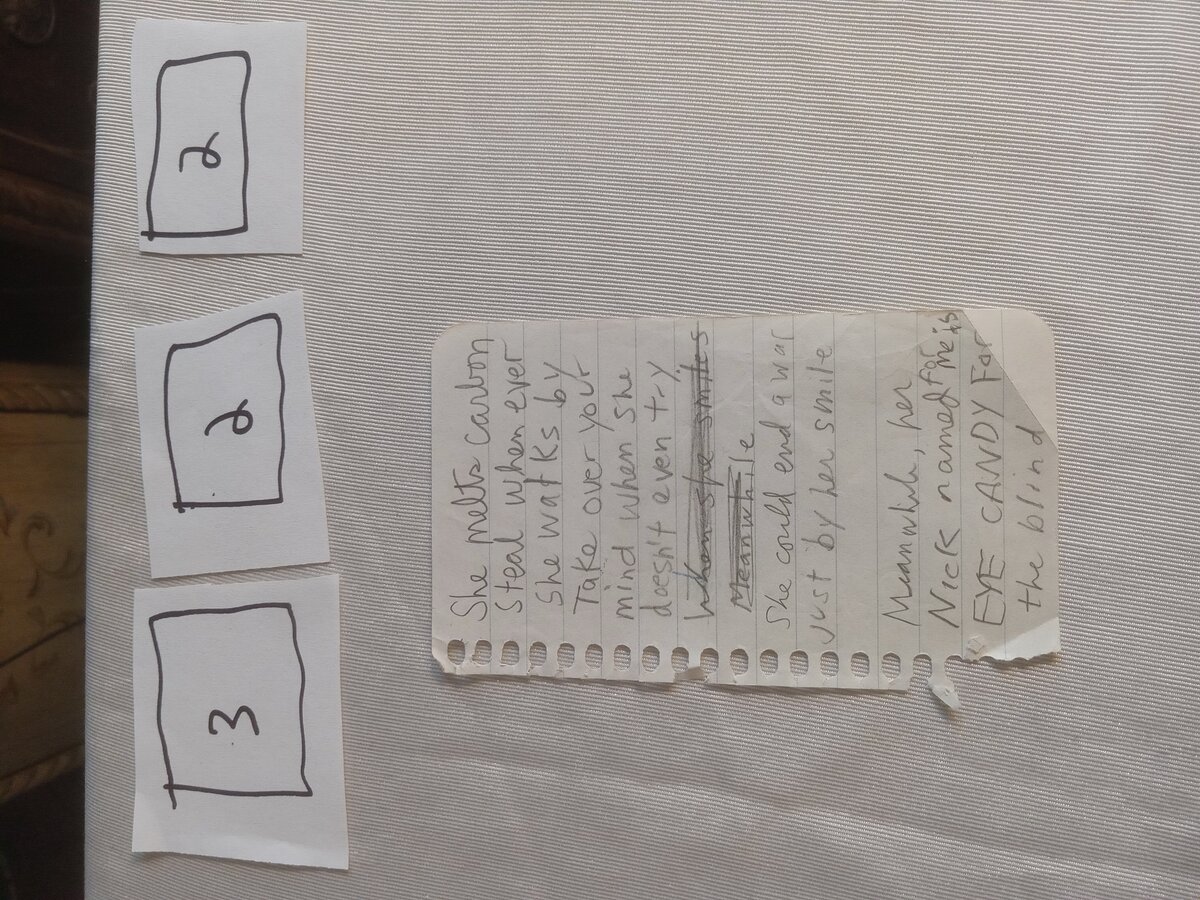 3 2 2
She melts carbon
Steal when ever
She walks by
Take over your
mind when she
doesn't even try
When she smiles
Meanwhile
She could end a war
just by her smile
her
Nick named for me is
EYE CANDY For
the blind